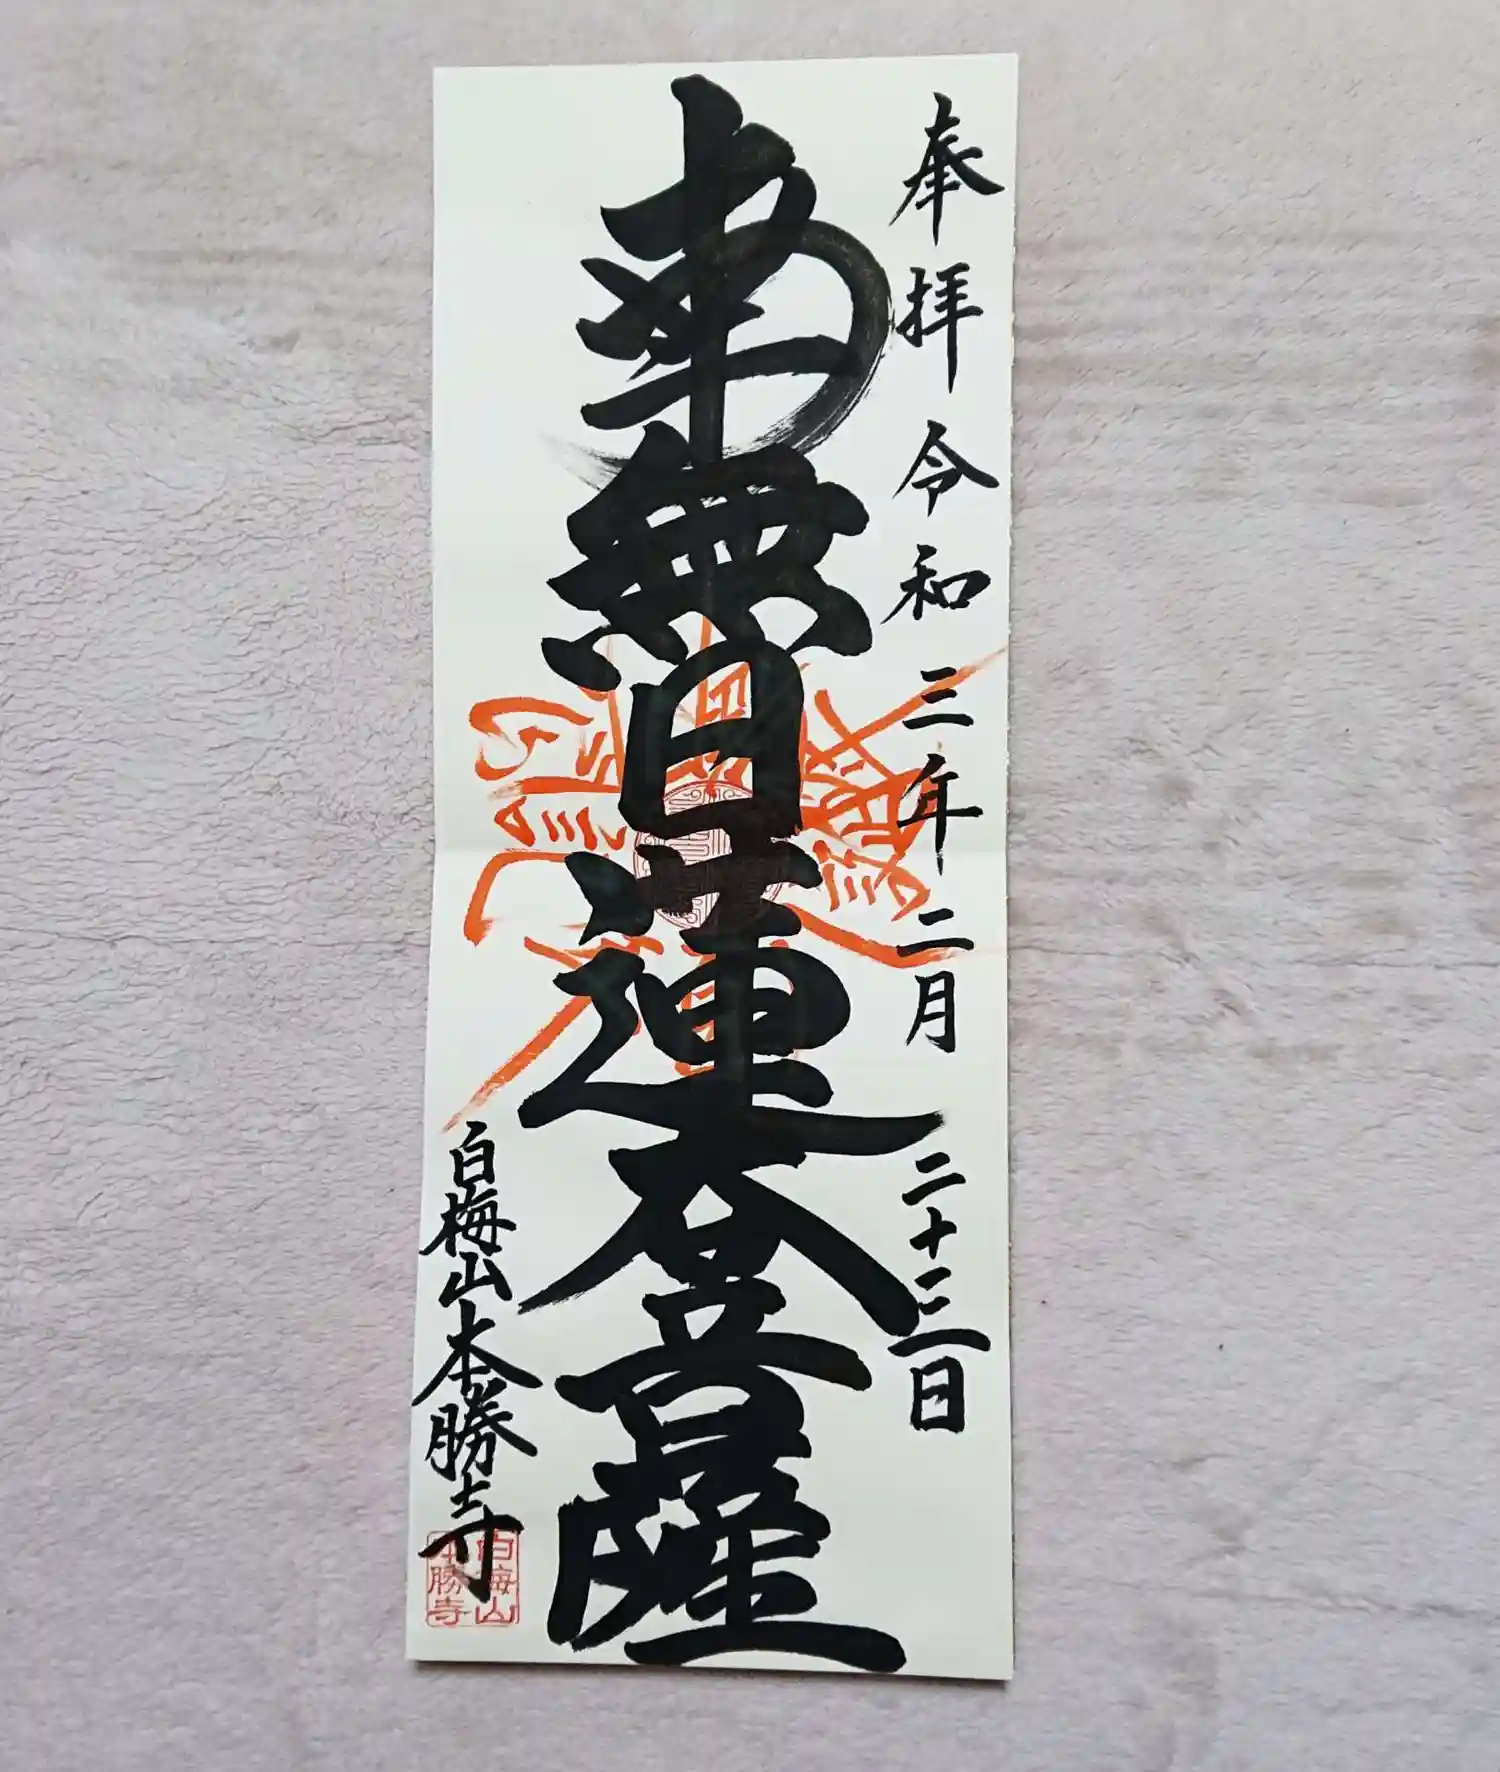 奉拝 令和三年二月二十三日
南無日蓮大菩薩
白梅山本勝寺
白梅山
本勝寺